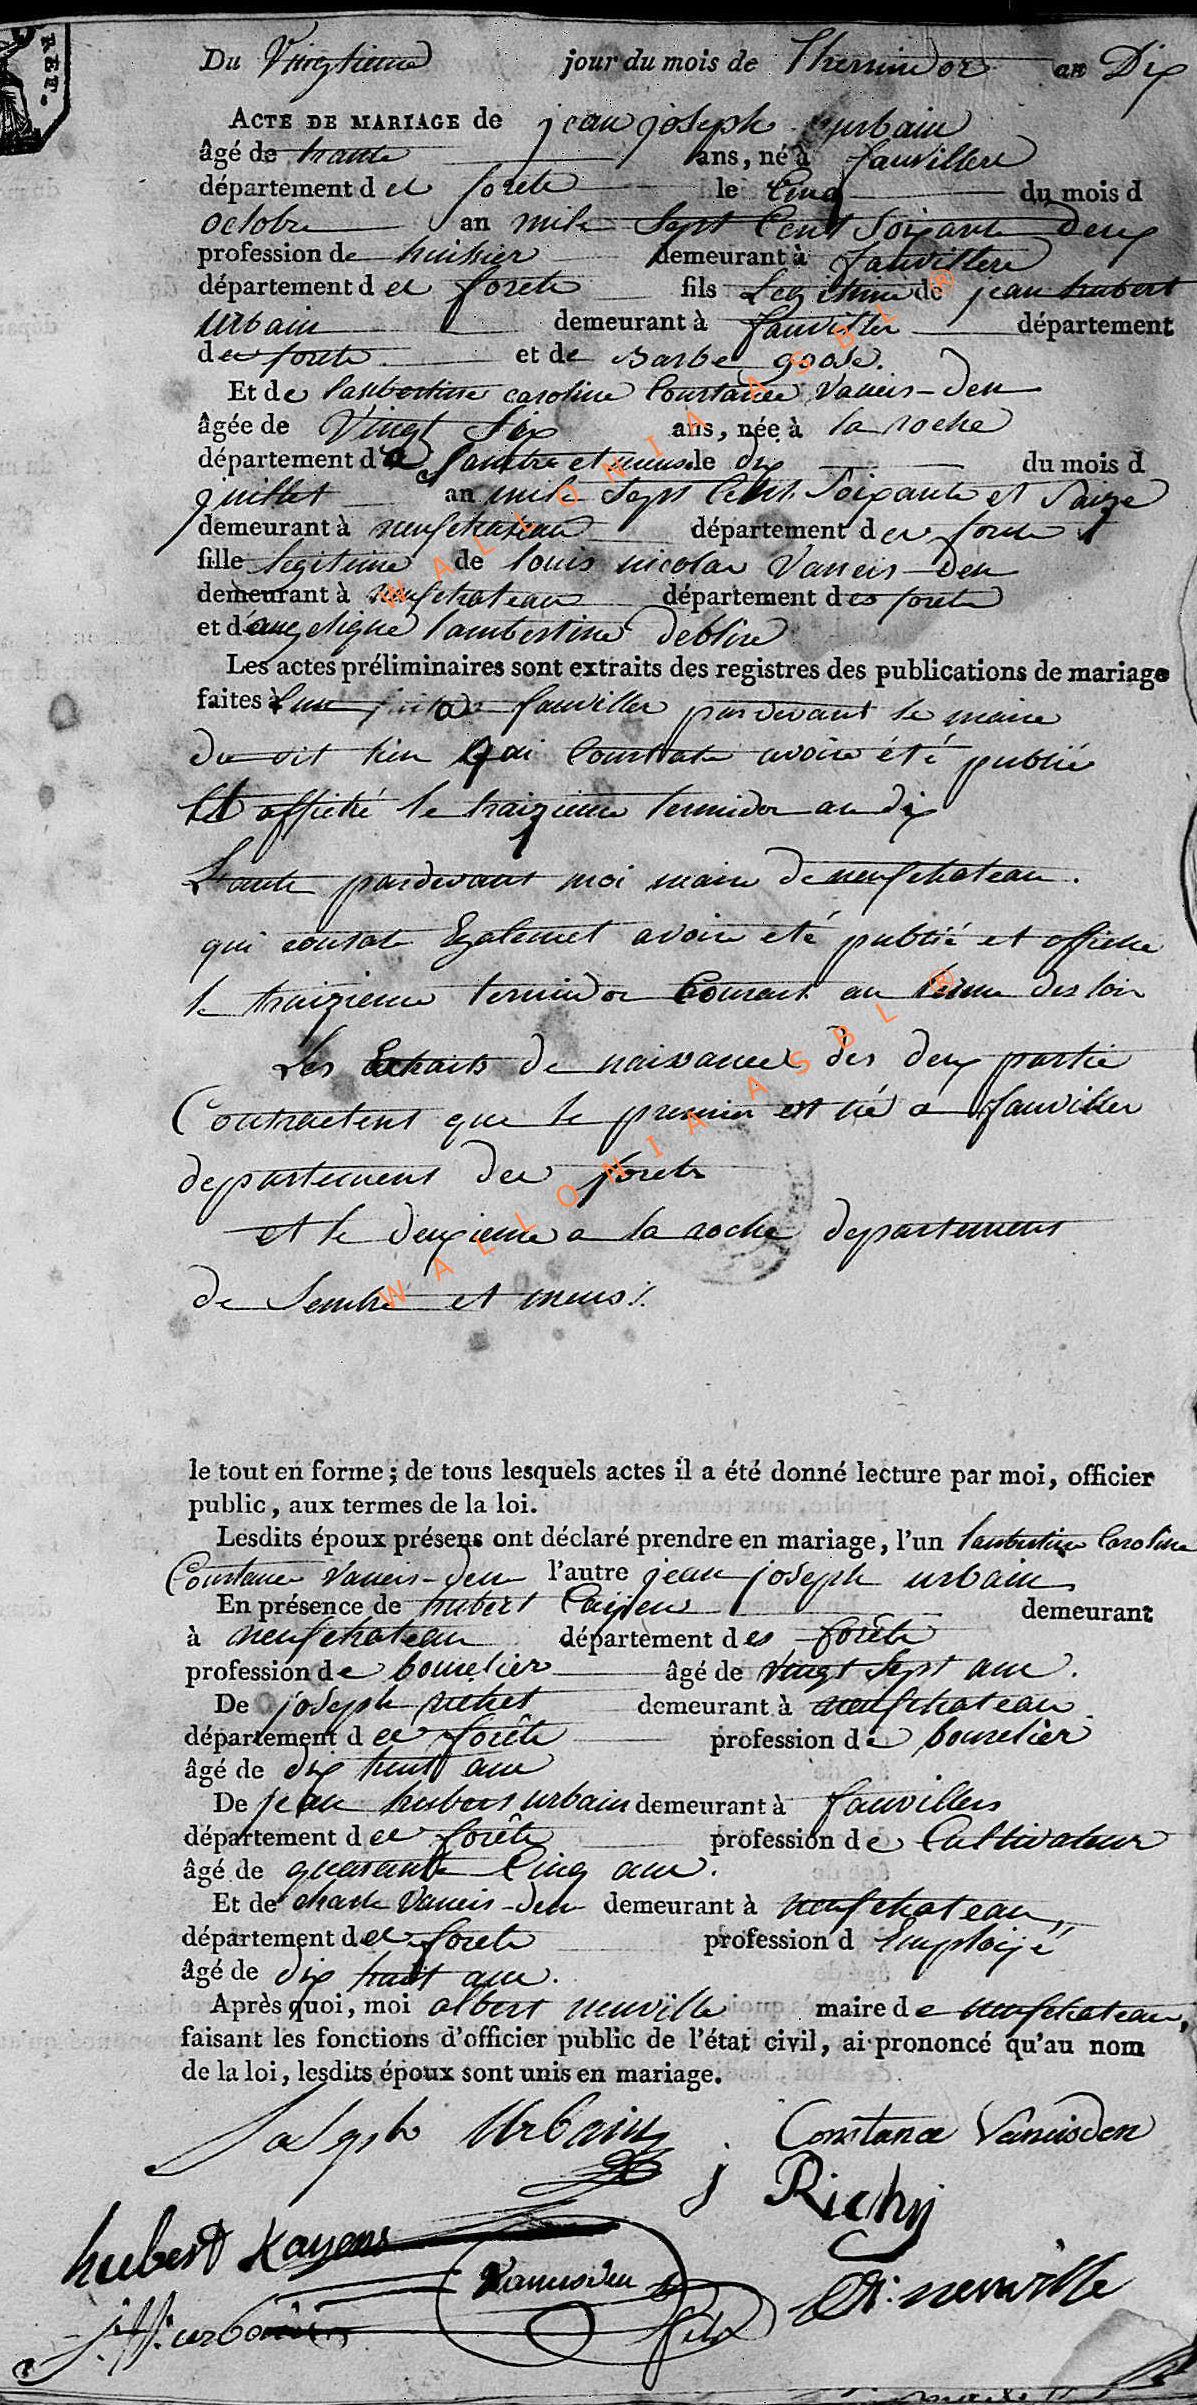 RÉP.
Du Vingtieme jour du mois de Thermidor an Dix
ACTE DE MARIAGE de jean joseph urbain
âgé de trante ans, né à fauvillere
département d es forets le Cinq du mois d
octobre an mile Sept Cent Soixante Deux
profession de huissier demeurant à fauvillere
département d es forets fils Legitime de jean hubert
Urbain demeurant à fauviller département
des forets et de Barbe goose.
Et de lambertine caroline Constance Vaneis-den
âgée de Vingt Six ans, née à la roche
département d Sambre et meuse le dix du mois d
juillet an mile Sept Cent Soixante et Saize
demeurant à neufchateau département d es forets
fille legitime de louis nicolas Vaneis-den
demeurant à neufchateau département des forets
et d'angelique lambertine deblire
Les actes préliminaires sont extraits des registres des publications de mariage
faites à l'un fait a fauviller pardevant le maire
du dit lieu Qui Constate avoir été publié
Et affiché le traizieme termidor an dix
L'autre pardevant moi maire de neufchateau.
qui constate Egalemet avoir eté publié et affiche
le traizieme termidor Courant au terme des loix
Les Extraits de naissance des deux partie
Contractent que le premier est né a fauviller
departement des forets
et le deuxieme a la roche departement
de Sembre et meus.
le tout en forme ; de tous lesquels actes il a été donné lecture par moi, officier
public, aux termes de la loi.
Lesdits époux présens ont déclaré prendre en mariage, l'un lambertine Caroline
Constance Vaneis-den l'autre jean joseph urbain
En présence de hubert Caijens demeurant
à neufchateau département des forêts
profession de bourelier âgé de vingt Sept ans.
De joseph richet demeurant à neufchateau
département d es forêts profession de bourelier
âgé de dix huit ans
De jean hubert urbain demeurant à fauvillers
département d es forêts profession de Cultivateur
âgé de quarante Cinq ans.
Et de charle Vaneis-den demeurant à neufchateau
département des forets profession d Emploijé
âgé de dix huit ans.
Après quoi, moi albert neuville maire de neufchateau,
faisant les fonctions d'officier public de l'état civil, ai prononcé qu'au nom
de la loi, lesdits époux sont unis en mariage.
Joseph Urbain Constance Vaneisden
j Richy
hubert Kayens
Vaneisden fils
A: neuville
j: h: urbain
WALLONIA ASBL ®
WALLONIA ASBL ®